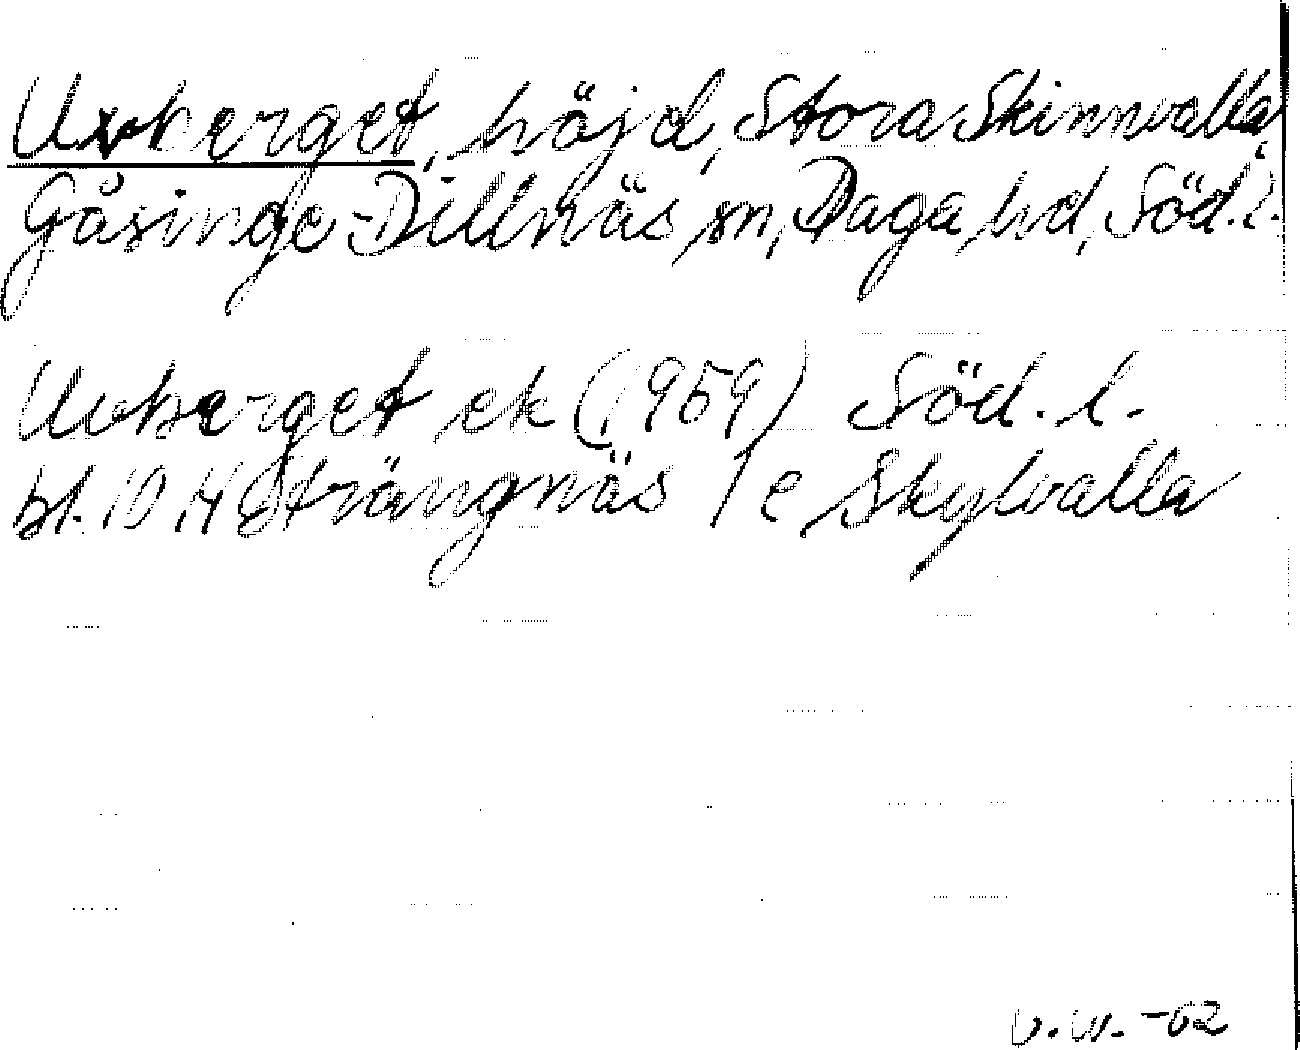 Uvberget, höjd, Stora Skinnvalla,
Gåsinge-Dillnäs sn, Daga hd, Söd. l.
Uvberget ek (1959) Söd. l.
bl. 10 H Strängnäs / c Skylvalla
-62